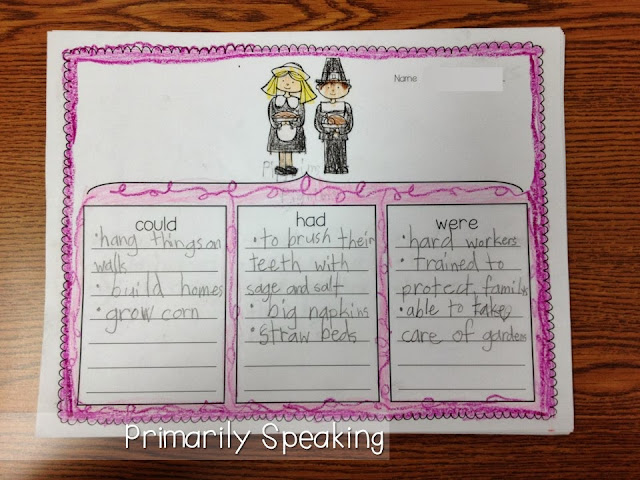 Name
could
• hang things on
walk
• build homes
• grow corn
had
• to brush their
teeth with
sage and salt
• big napkins
• straw beds
were
• hard workers
• trained to
protect familys
• able to take
care of gardens
Primarily Speaking